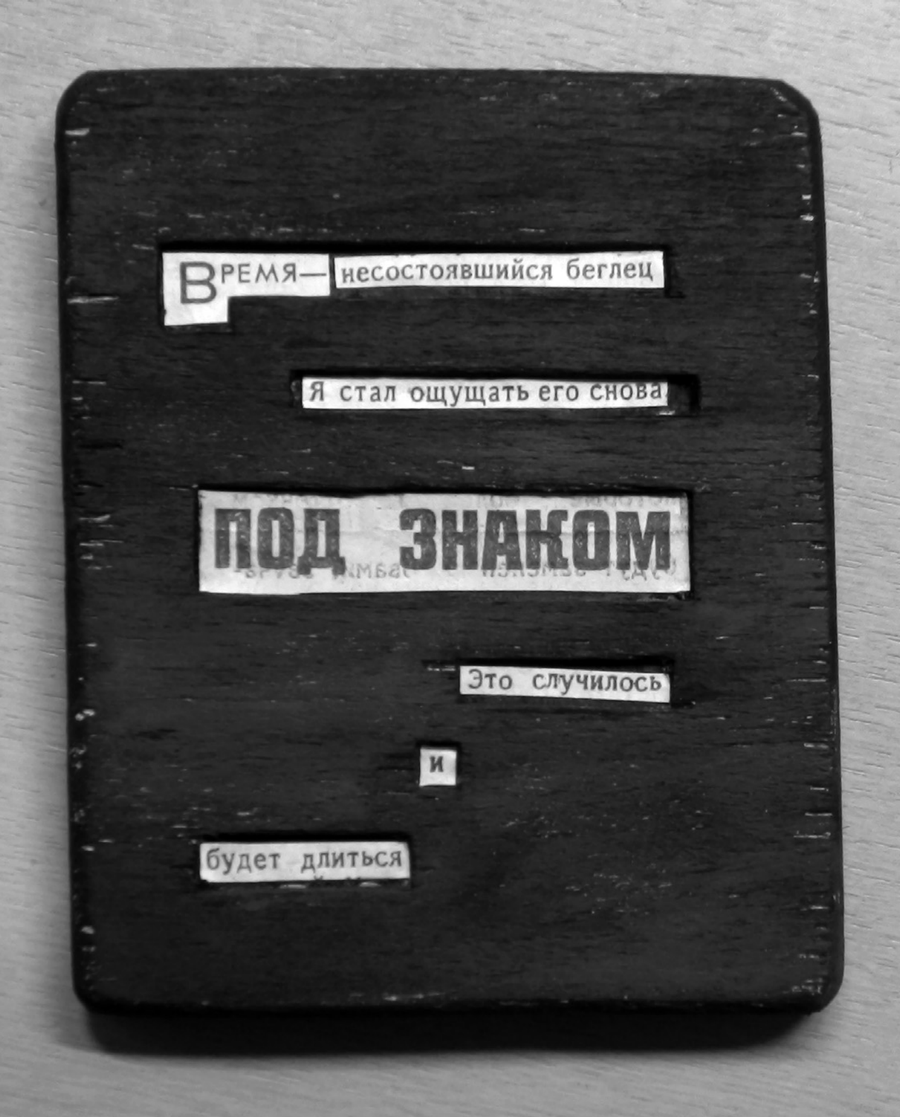 Время— несостоявшийся беглец
Я стал ощущать его снова
ПОД ЗНАКОМ
Это случилось
и
будет длиться